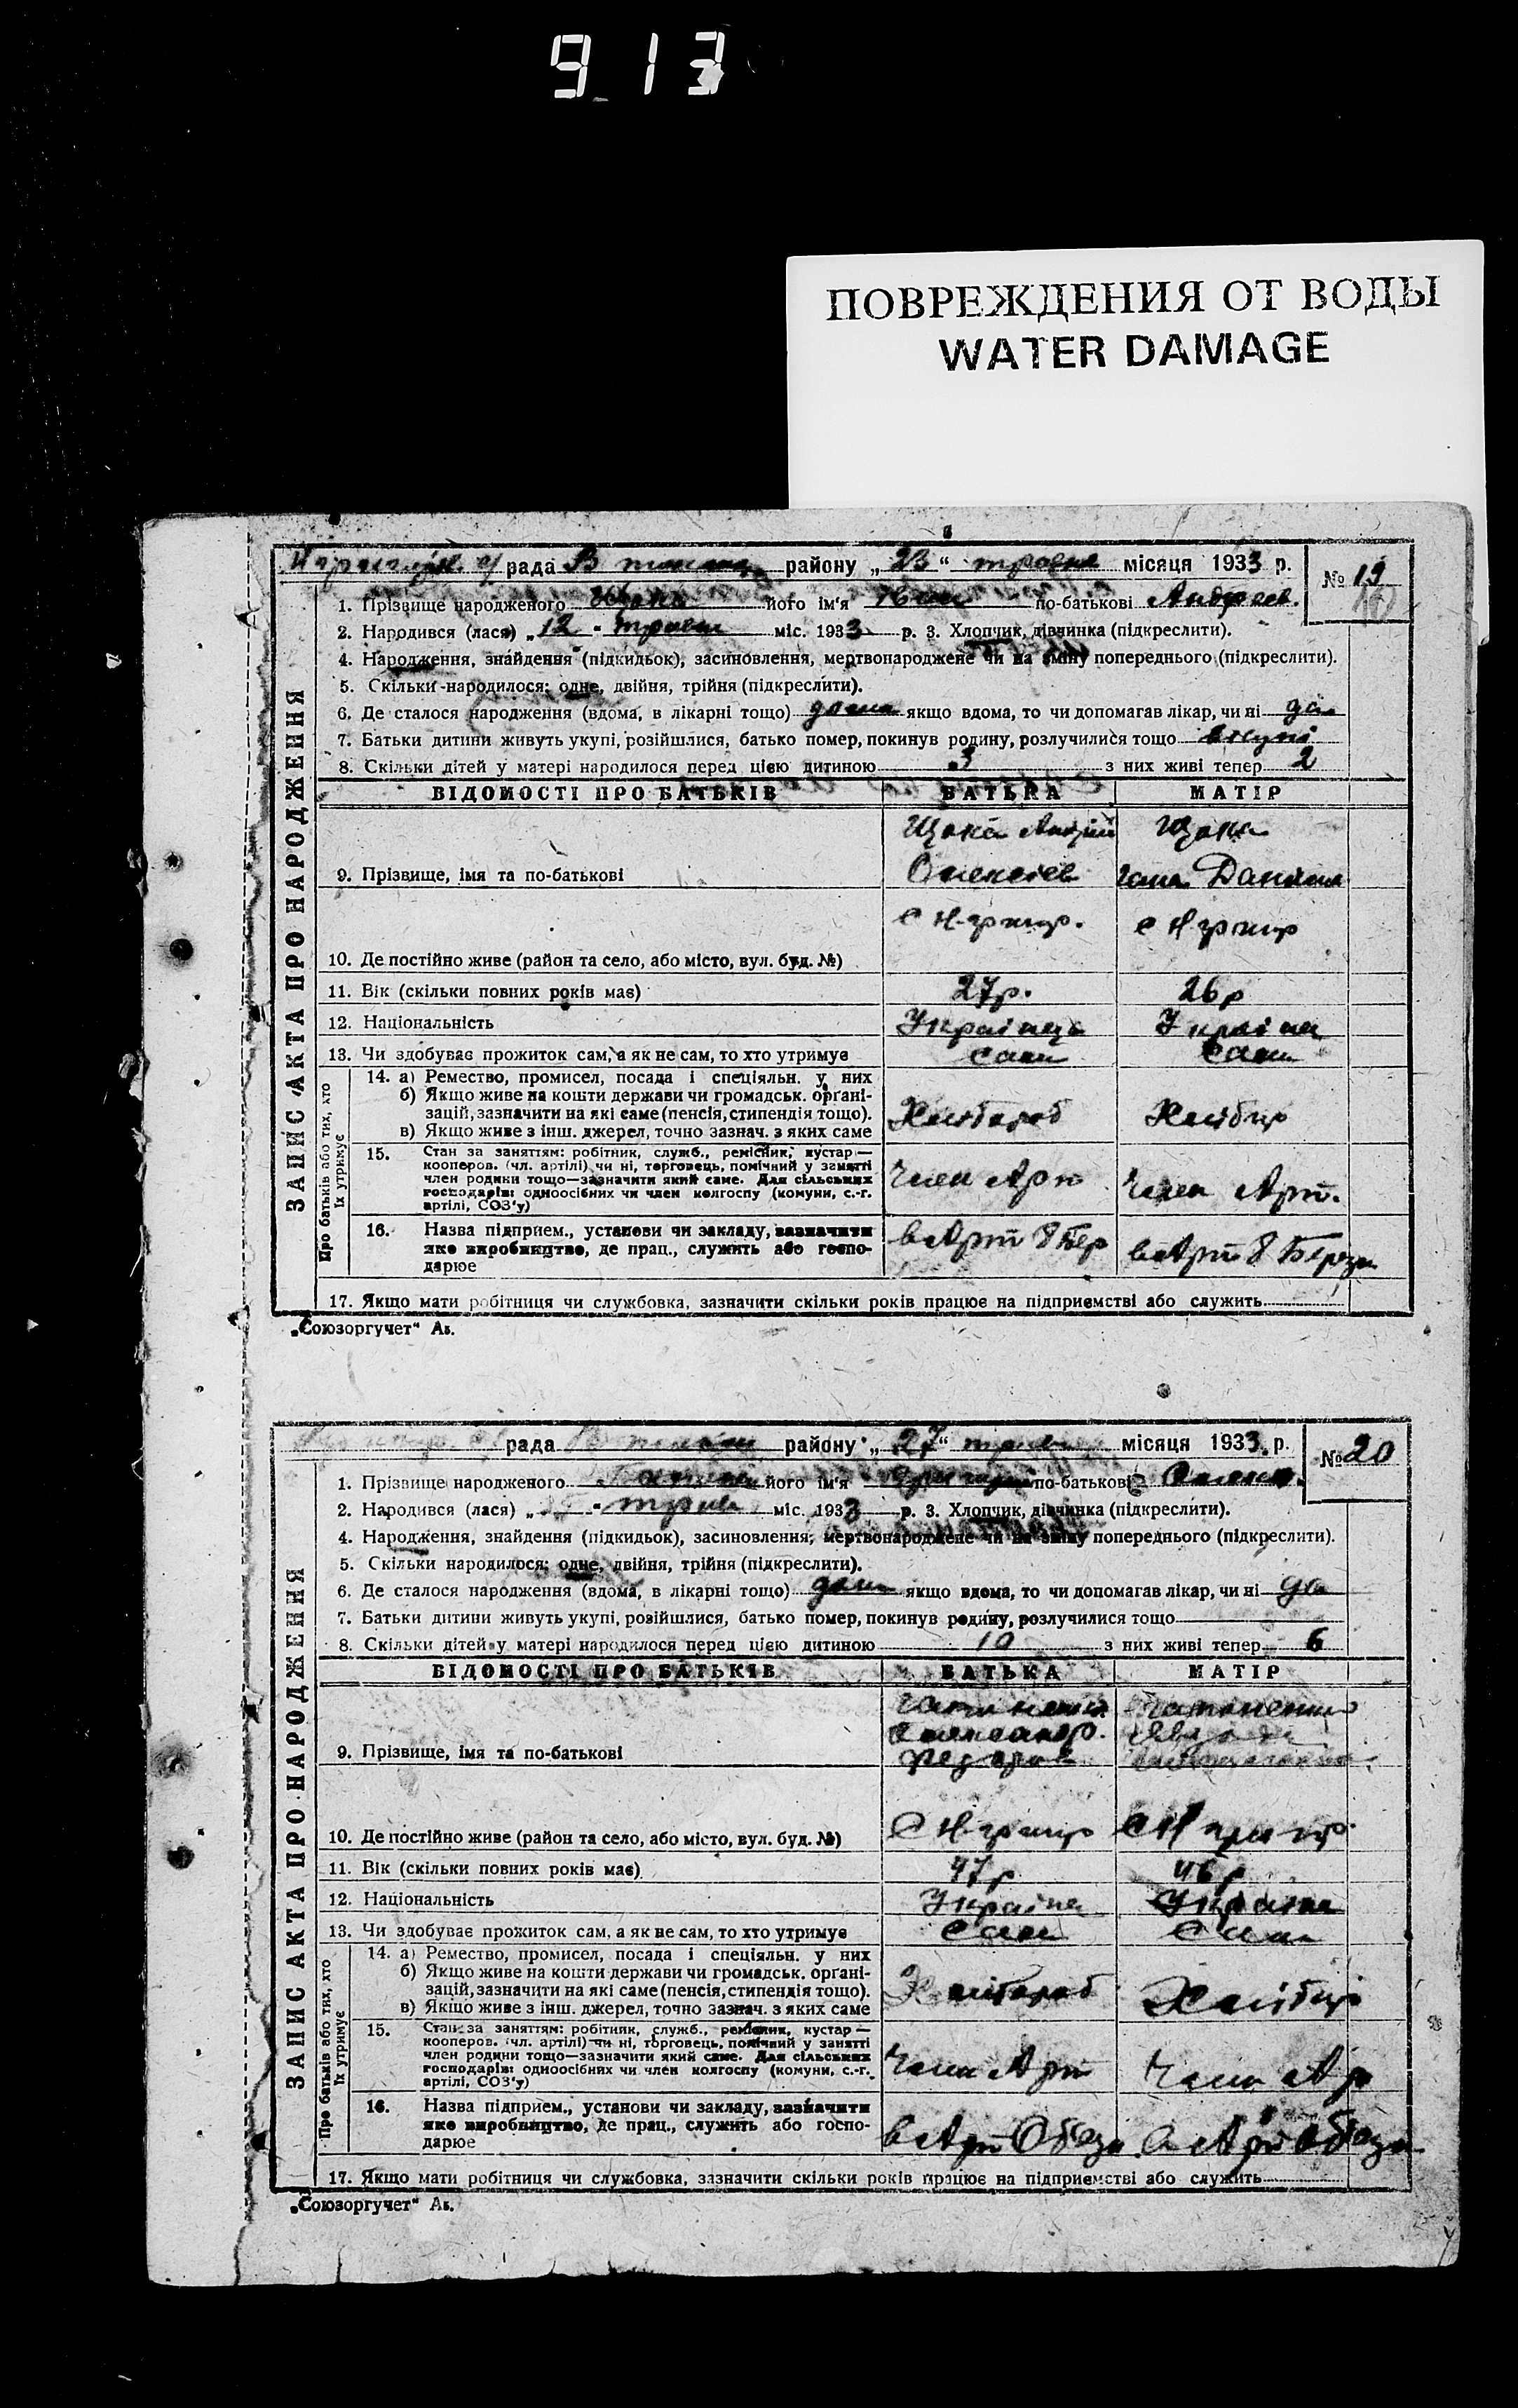 913
ПОВРЕЖДЕНИЯ ОТ ВОДЫ
WATER DAMAGE
рада району „ 23 “ травня місяця 1933 р.
№ 19
1. Прізвище народженого його ім'я по-батькові Андреев.
2. Народився (лася) „ 12 “ травня міс. 1933 р. 3. Хлопчик, дівчинка (підкреслити).
4. Народження, знайдення (підкидьок), засиновлення, мертвонароджене чи на зміну попереднього (підкреслити).
5. Скільки народилося: одне, двійня, трійня (підкреслити).
6. Де сталося народження (вдома, в лікарні тощо) дома якщо вдома, то чи допомагав лікар, чи ні да
7. Батьки дитини живуть укупі, розійшлися, батько помер, покинув родину, розлучилися тощо вкупі
8. Скільки дітей у матері народилося перед цією дитиною 3 з них живі тепер 2
ЗАПИС АКТА ПРО НАРОДЖЕННЯ
ВІДОМОСТІ ПРО БАТЬКІВ БАТЬКА МАТІР
Щока Андрій Щока
9. Прізвище, імя та по-батькові Олексіев Данилов
10. Де постійно живе (район та село, або місто, вул. буд. №)
11. Вік (скільки повних років має) 27р. 26р
12. Національність Українец Україна
13. Чи здобуває прожиток сам, а як не сам, то хто утримує сам сам
Про батьків або тих, хто їх утримує
14. а) Ремество, промисел, посада і спеціяльн. у них
б) Якщо живе на кошти держави чи громадськ. органі-
зацій, зазначити на які саме (пенсія, стипендія тощо). Хлібороб Хлібор
в) Якщо живе з інш. джерел, точно зазнач. з яких саме
15. Стан за заняттям: робітник, служб., ремісник, кустар —
кооперов. (чл. артілі) чи ні, торговець, помічний у занятті
член родини тощо—зазначити який саме. Для сільських Член Арт Член Арт.
господарів: одноосібних чи член колгоспу (комуни, с.-г.
артілі, СОЗ'у)
16. Назва підприєм., установи чи закладу, зазначити
яке виробництво, де прац., служить або госпо- в Арт 8 Бер в Арт 8 Березн
дарює
17. Якщо мати робітниця чи службовка, зазначити скільки років працює на підприємстві або служить
„Союзоргучет“ Ав.
рада району „ 27 “ травня місяця 1933 р.
№ 20
1. Прізвище народженого його ім'я по-батькові
2. Народився (лася) „ “ травн міс. 1933 р. 3. Хлопчик, дівчинка (підкреслити).
4. Народження, знайдення (підкидьок), засиновлення, мертвонароджене чи на зміну попереднього (підкреслити).
5. Скільки народилося: одне, двійня, трійня (підкреслити).
6. Де сталося народження (вдома, в лікарні тощо) дома якщо вдома, то чи допомагав лікар, чи ні да
7. Батьки дитини живуть укупі, розійшлися, батько помер, покинув родину, розлучилися тощо
8. Скільки дітей у матері народилося перед цією дитиною 10 з них живі тепер 6
ЗАПИС АКТА ПРО НАРОДЖЕННЯ
ВІДОМОСТІ ПРО БАТЬКІВ БАТЬКА МАТІР
Олександр.
9. Прізвище, імя та по-батькові Федоров
10. Де постійно живе (район та село, або місто, вул. буд. №)
11. Вік (скільки повних років має) 47р 46р
12. Національність Україна Україна
13. Чи здобуває прожиток сам, а як не сам, то хто утримує сам сам
Про батьків або тих, хто їх утримує
14. а) Ремество, промисел, посада і спеціяльн. у них
б) Якщо живе на кошти держави чи громадськ. органі-
зацій, зазначити на які саме (пенсія, стипендія тощо). Хлібороб Хлібор
в) Якщо живе з інш. джерел, точно зазнач. з яких саме
15. Стан за заняттям: робітник, служб., ремісник, кустар —
кооперов. (чл. артілі) чи ні, торговець, помічний у занятті
член родини тощо—зазначити який саме. Для сільських Член Арт Член Ар
господарів: одноосібних чи член колгоспу (комуни, с.-г.
артілі, СОЗ'у)
16. Назва підприєм., установи чи закладу, зазначити
яке виробництво, де прац., служить або госпо- в Арт Арт
дарює
17. Якщо мати робітниця чи службовка, зазначити скільки років працює на підприємстві або служить
„Союзоргучет“ Ав.